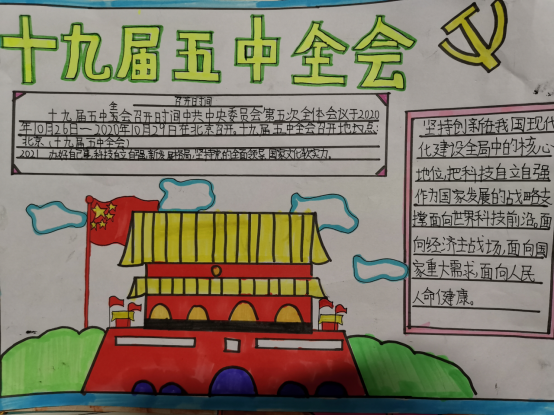 十九届五中全会
召开时间
十九届五中全会召开时间中共中央委员会第五次全体会议于2020
年10月26日—2020年10月29日在北京召开。十九届五中全会召开地点:
北京。(十九届五中全会)
2021 办好自己事,科技自立自强,新发展格局,坚持党的全面领导,国家文化软实力。
坚持创新在我国现代
化建设全局中的核心
地位,把科技自立自强
作为国家发展的战略支
撑面向世界科技前沿。面
向经济主战场,面向国
家重大需求,面向人民
人命健康。